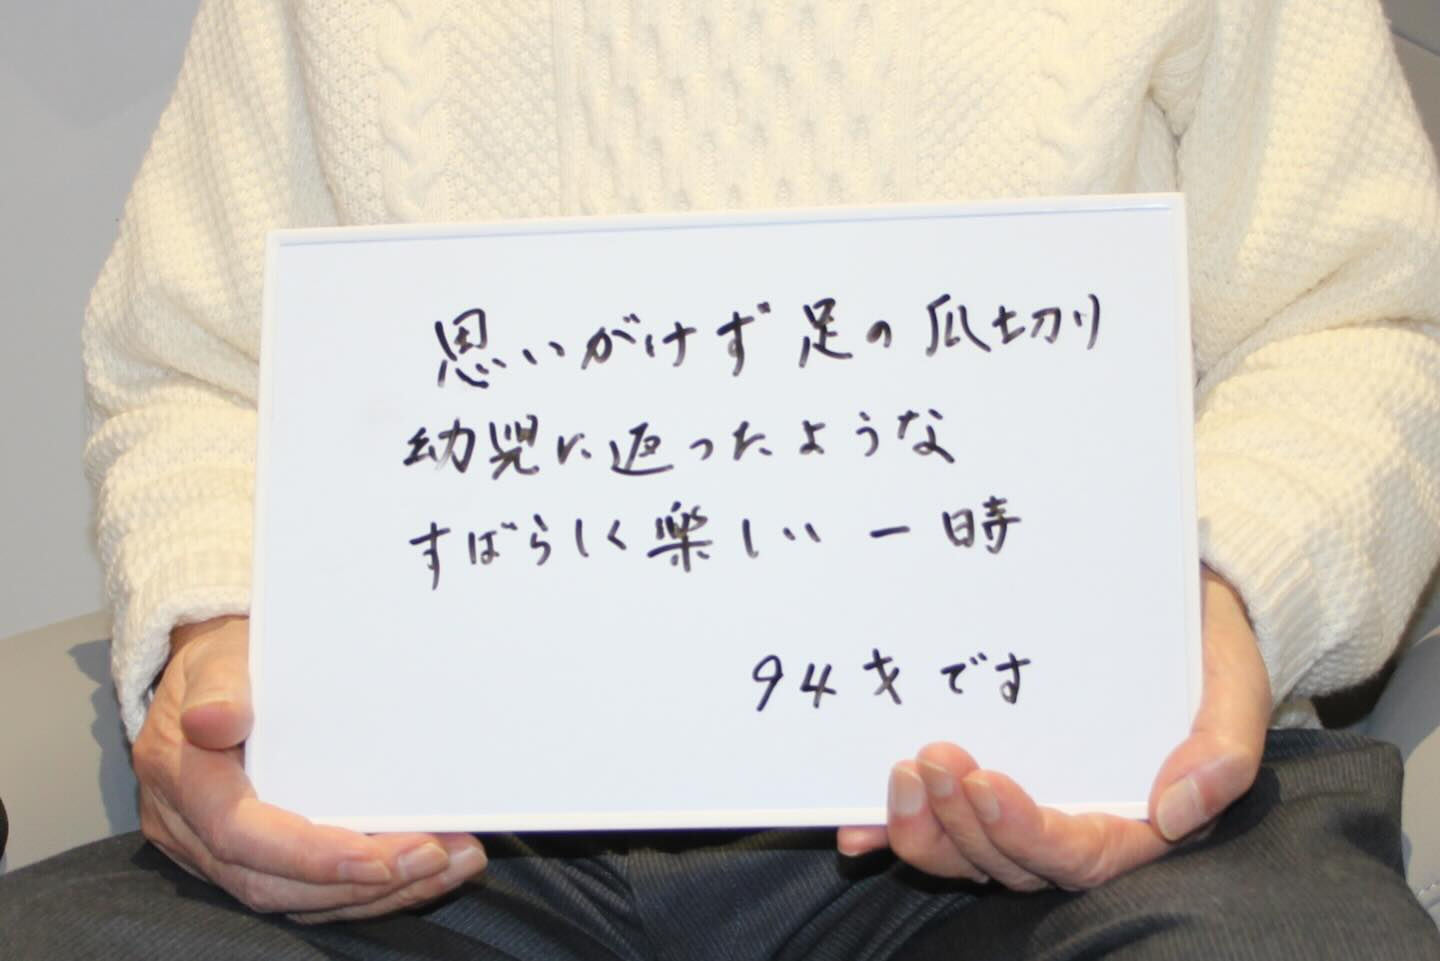 思いがけず足の爪切り
幼児に返ったような
すばらしく楽しい一時
94才です